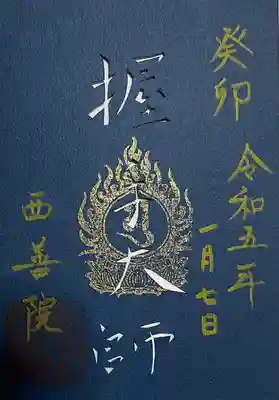 癸卯 令和五年
一月七日
握手大師
西善院